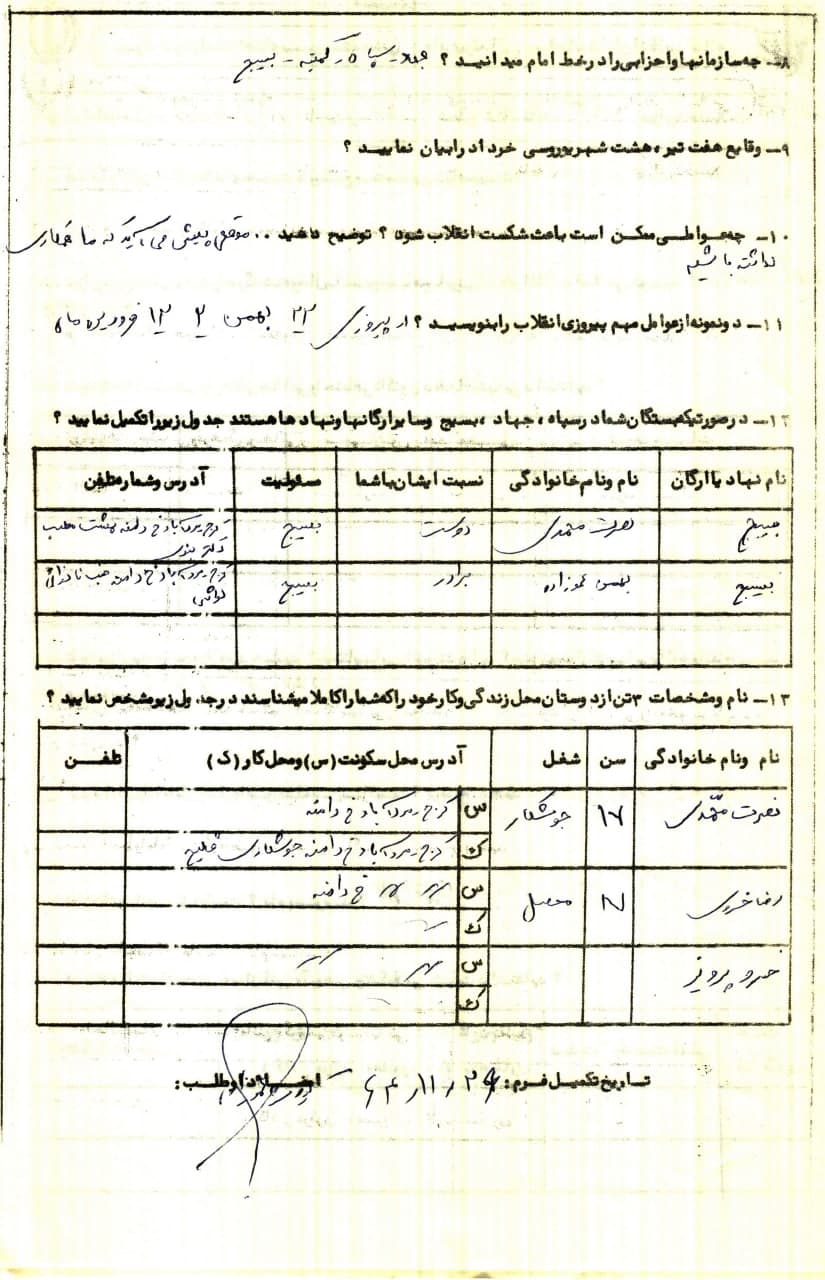 ۸- چه سازمانها و احزابی را در خط امام میدانید ؟ جهاد - سپاه - کمیته - بسیج
۹- وقایع هفت تیر، هشت شهریور و سی خرداد را بیان نمایید ؟
۱۰- چه عواملی ممکن است باعث شکست انقلاب شود ؟ توضیح دهید .. موقعی پیش می آید که ما
نداشته باشیم
۱۱- دو نمونه از عوامل مهم پیروزی انقلاب را بنویسید ؟ از پیروزی ۲۲ بهمن ۲ ۱۲ فروردین ماه
۱۲- در صورتیکه بستگان شما در سپاه ، جهاد ، بسیج و سایر ارگانها و نهادها هستند جدول زیر را تکمیل نمایید ؟
نام نهاد یا ارگان نام و نام خانوادگی نسبت ایشان با شما مسئولیت آدرس و شماره تلفن
بسیج نصرت محمدی دوست بسیج کرج مردآباد خ دامنه پشت مطب
دکتر
بسیج بهمن برادر بسیج کرج مردآباد خ دامنه جنب
۱۳- نام و مشخصات ۳ تن از دوستان محل زندگی و کار خود را که شما را کاملا میشناسند در جدول زیر مشخص نمایید ؟
نام و نام خانوادگی سن شغل آدرس محل سکونت (س) و محل کار (ک) تلفن
نصرت محمدی ۱۷ جوشکار س کرج مردآباد خ دامنه
ک کرج مردآباد خ دامنه جوشکاری
رضا محصل س " " خ دامنه
ک "
خسرو پرویز س " "
ک
تاریخ تکمیل فرم : ۶۴/۱۱/۲۹ امضاء داوطلب :